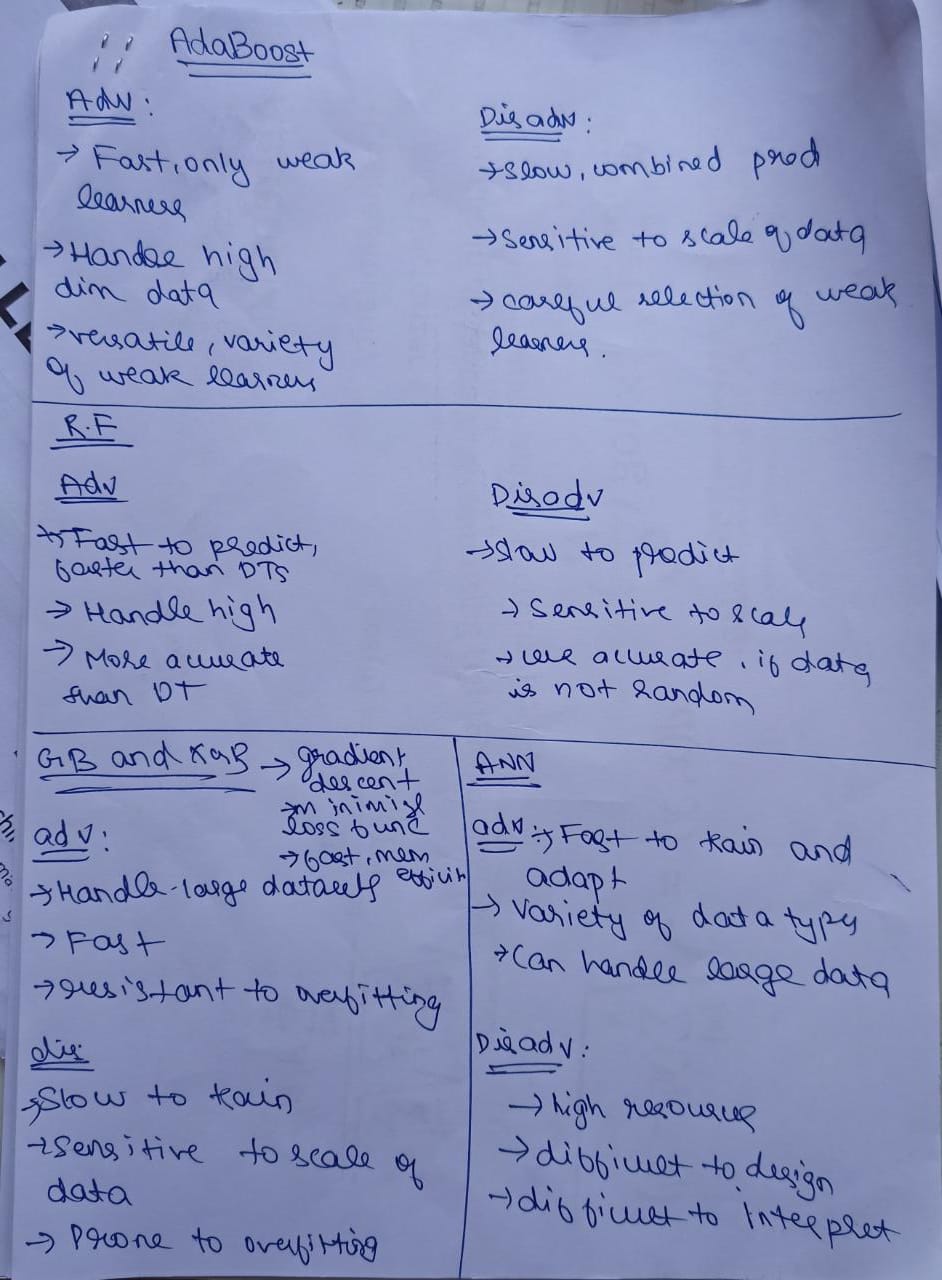 AdaBoost
Adv:
→ Fast, only weak
learners
→ Handle high
dim data
→ versatile, variety
of weak learners
Disadv:
→ slow, combined pred
→ Sensitive to scale of data
→ careful selection of weak
learners.
R.F
Adv
→ Fast to predict,
faster than DTS
→ Handle high
→ More accurate
than DT
Disadv
→ slow to predict
→ Sensitive to scale
→ less accurate, if data
is not random
GB and XGB → gradient
descent
→ minimise
loss func
→ fast, mem
efficient
adv:
→ Handle large datasets
→ Fast
→ resistant to overfitting
dis:
→ Slow to train
→ Sensitive to scale of
data
→ Prone to overfitting
ANN
adv: → Fast to train and
adapt
→ variety of data types
→ Can handle large data
Disadv:
→ high resources
→ difficult to design
→ difficult to interpret